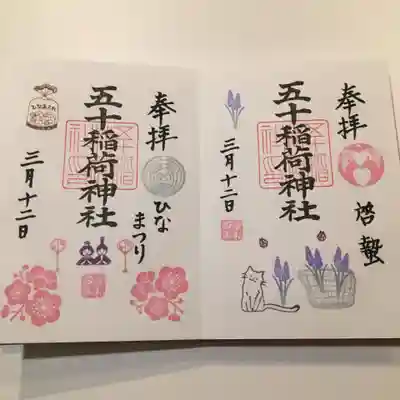 奉拝
啓蟄
五十稲荷神社
三月十二日
奉拝
ひな
まつり
五十稲荷神社
三月十二日
ひなあられ